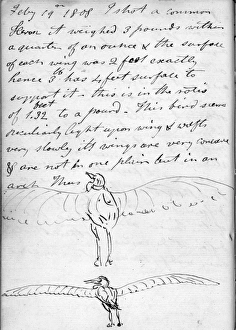 Feby 19th 1808 I shot a common
Heron it weighed 3 pounds within
a quarter of an ounce & the surface
of each wing was 2 feet exactly
hence to has 4 feet surface to
support it - this is in the ratio
of 1.32 feet to a pound. This bird seems
peculiarly light upon wing & wafts
very slowly its wings are very concave
& are not in one plain but in an
arch thus